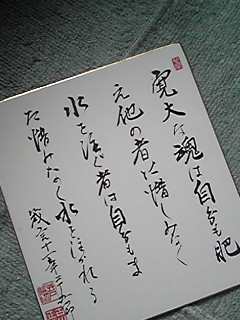 寛大な魂は自分も肥
え他の者に惜しみなく
水を注ぐ者は自分もま
た惜しみなく水を注がれる